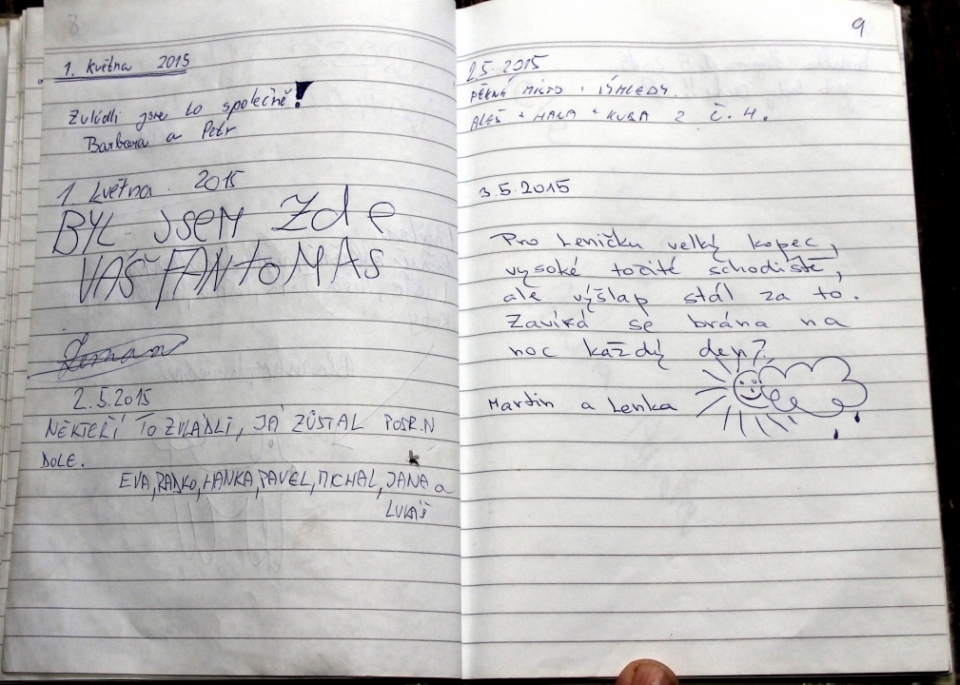 8
1. Května 2015
Zvládli jsme to společně!
Barbora a Petr
1 Května 2015
BYL JSEM Zde
VÁŠ FANTOMAS
2.5.2015
NĚKTEŘÍ TO ZVLÁDLI, JÁ ZŮSTAL
DOLE.
EVA, RADKO, HANKA, PAVEL, MICHAL, JANA a
LUKÁŠ
9
2.5.2015
PĚKNÉ MÍSTO + VÝHLEDY.
ALEŠ + + KUBA Z Č. H.
3.5.2015
Pro Leničku velký kopec,
vysoké točité schodiště,
ale výšlap stál za to.
Zavírá se brána na
noc každý den?
Martin a Lenka